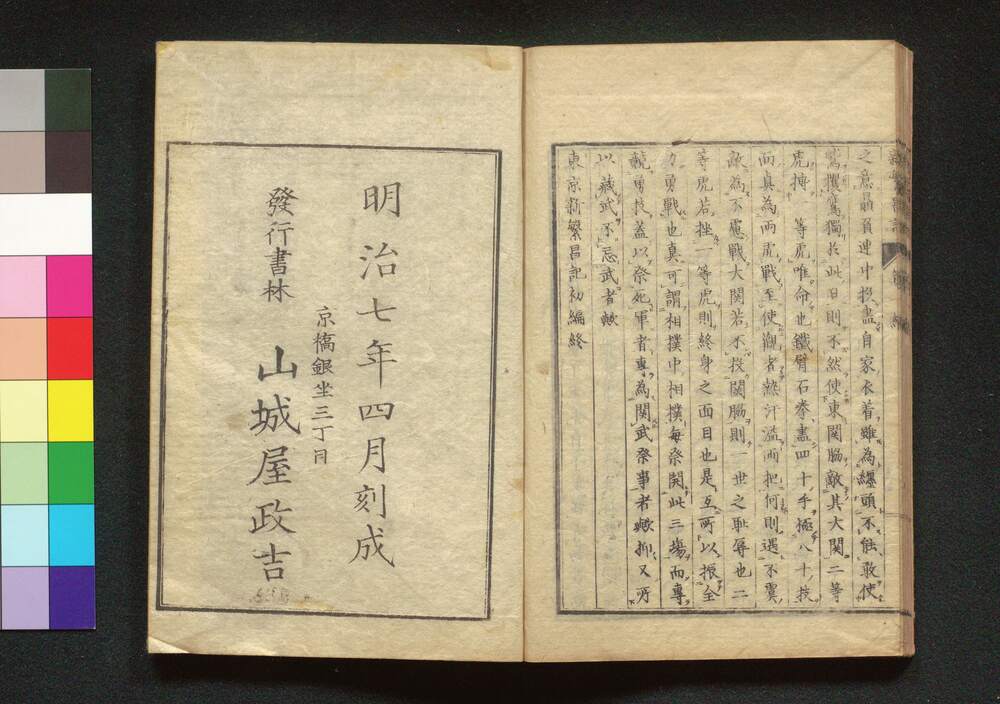 之意前負連中投盡自家衣着雖為纏頭不能敢使
鷲攫鷹獨於此日則不然使東関脇敵其大関二等
虎搏 等虎唯命也鐵臂石拳盡四十手極八十技
而真為両虎戦至使観者熱汗溢而把何則遇不虞
敵為不慮戦大関若不投関脇則一世之耻辱也二
等虎若挫一等虎則終身之面目也是互所以振全
力勇戦也真可謂相撲中相撲每祭開此三場而專
競勇技蓋以祭死軍者專為関武祭事者歟抑又所
以藏武不忘武者歟
東京新繁昌記初編終
明治七年四月刻成
京橋銀坐三丁目
發行書林 山城屋政吉